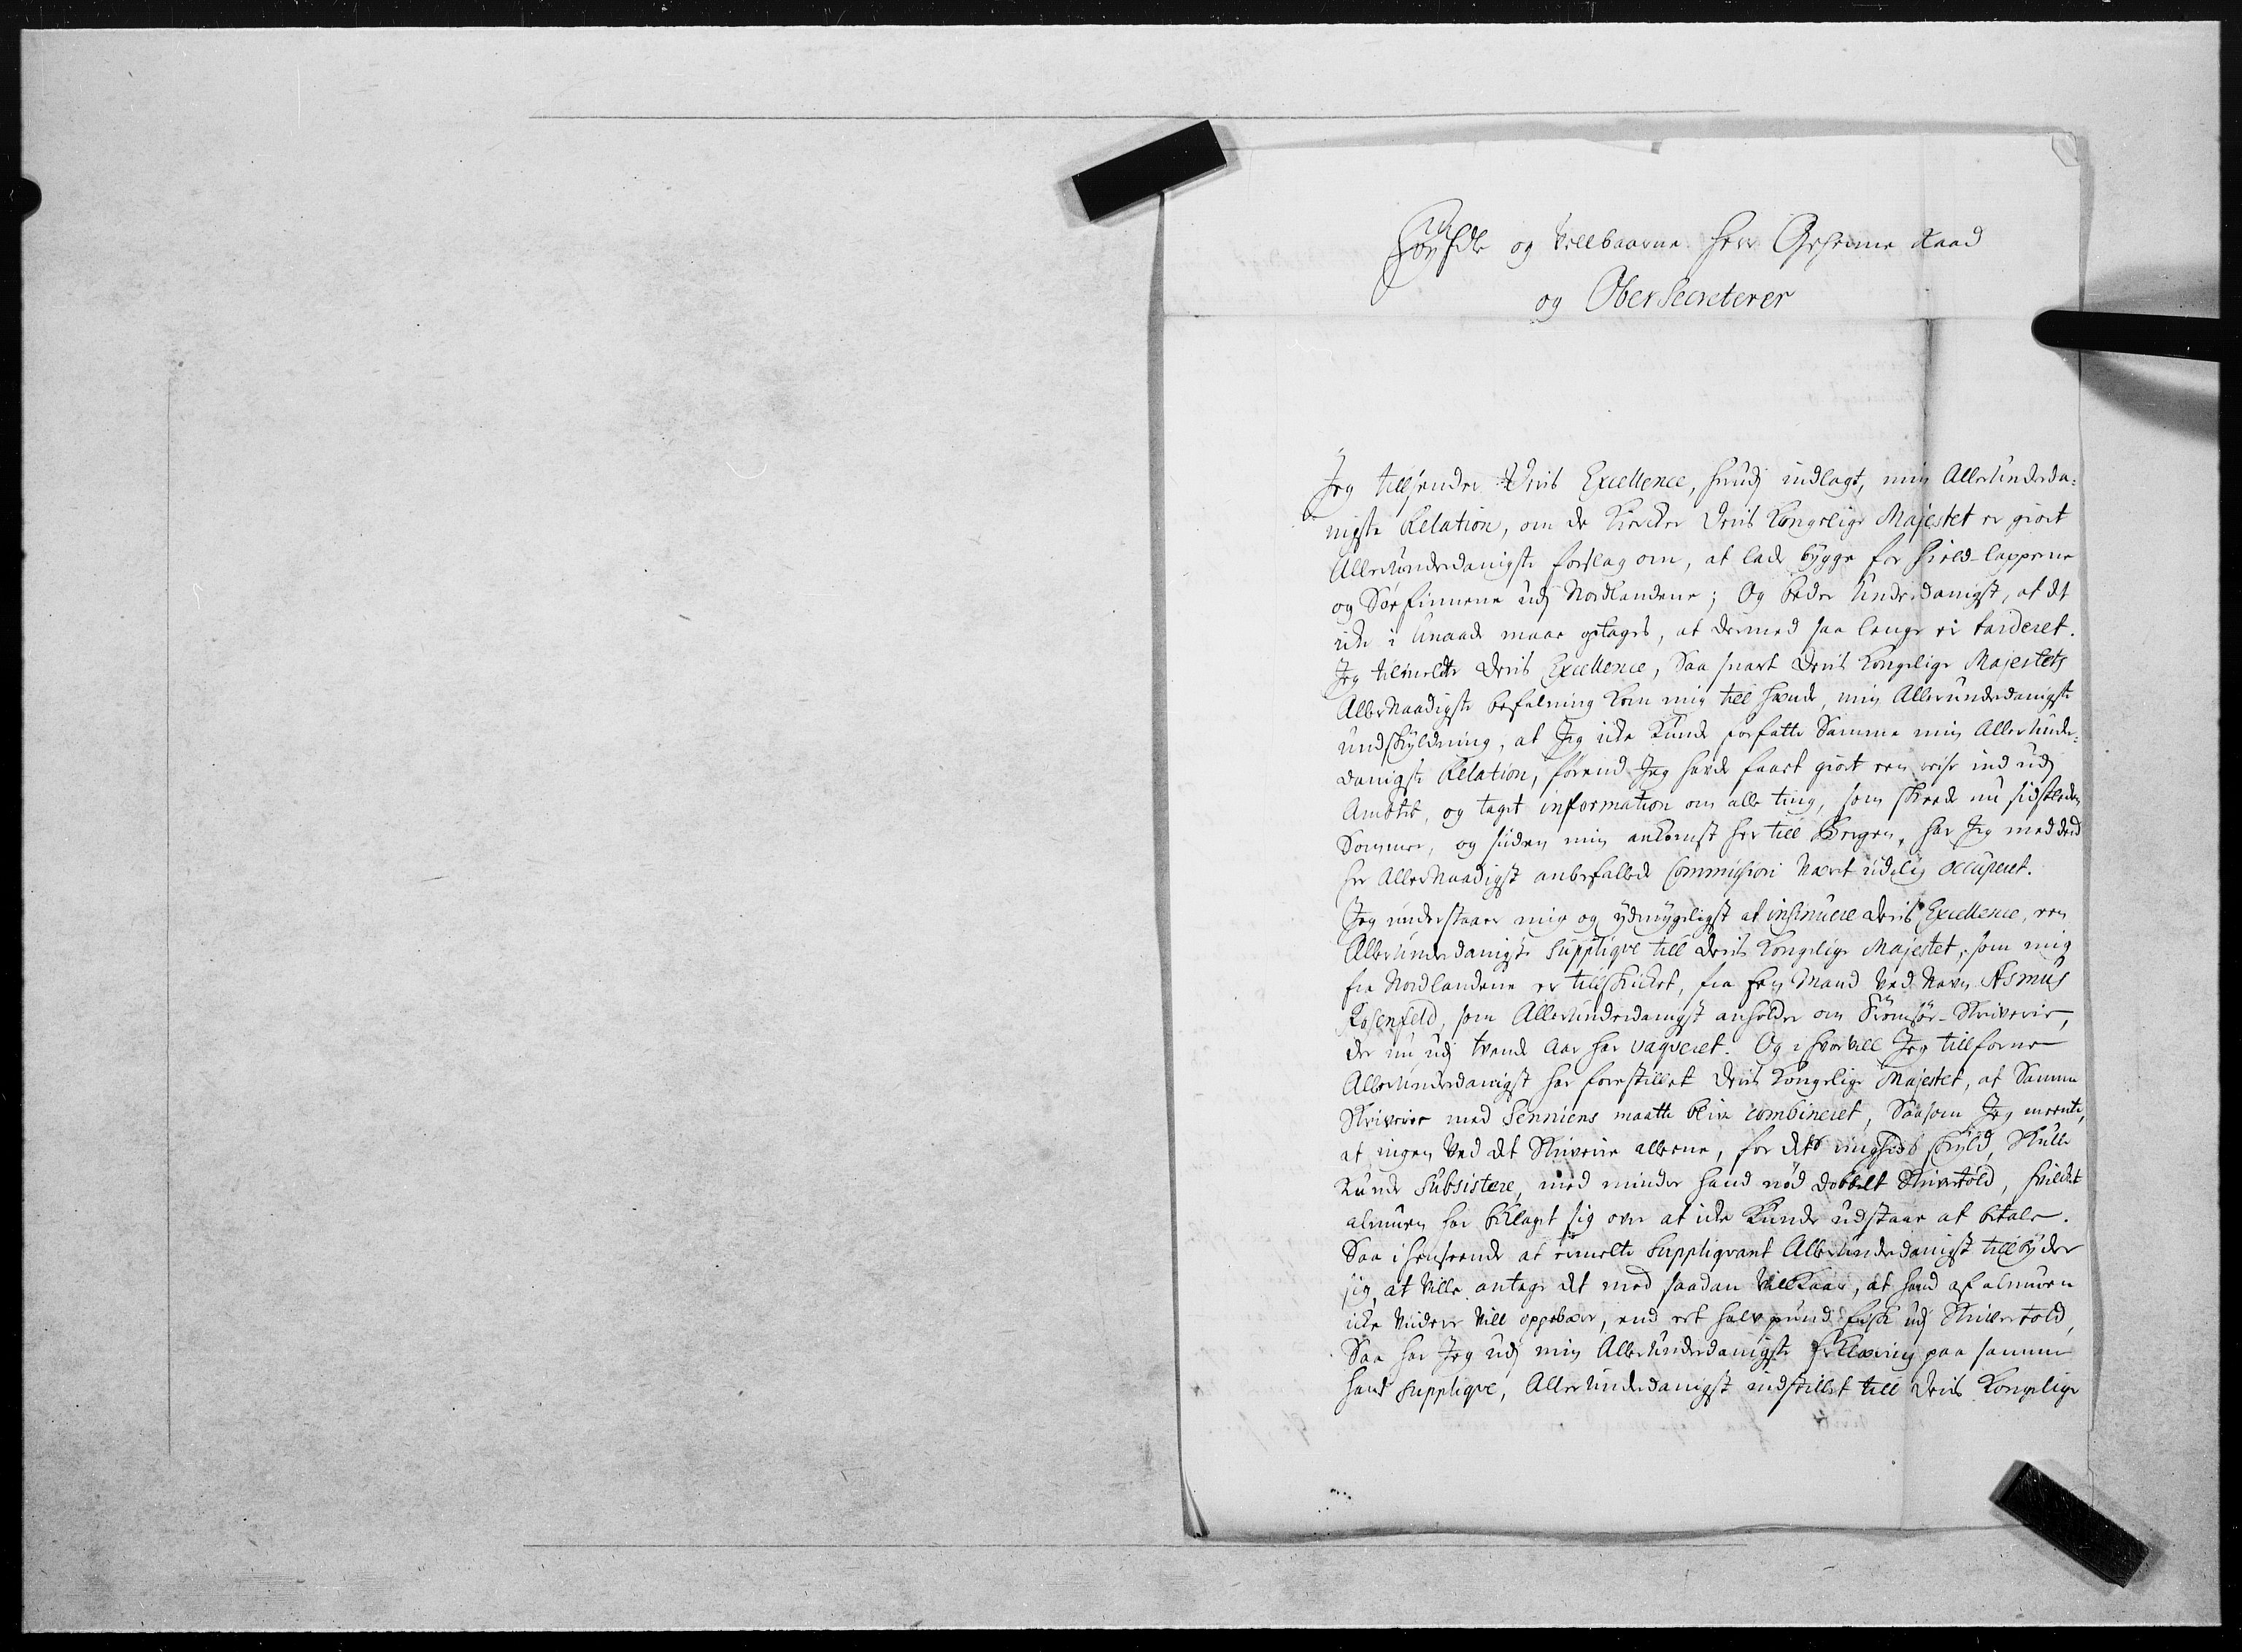 HøyEdle og Velbaarne Herr Geheime Raad
og Obersecreterer
Jeg tillsender Deris Excellence, hrudj indlagt, min Allerunderda-
nigste Relation, om de Kircker Deris Kongelige Majestet er giort
Allerunderdanigste forslag om, at lade bygge for Field-lapperne
og Søefinnerne udj Nordlandene; Og beder Underdanigst, at det
icke i Unaade maae optages, at dermed saa lenge er tarderet.
Jeg tilmelte Deris Excellence, Saa snart Deris Kongelige Majestets
AllerNaadigste befalning kom mig till hende, min Allerunderdanigste
undskyldning, at Jeg icke kunde forfatte Samme min Allerunder-
danigste Relation, førend Jeg hafde faaet giort een reise ind udj
Amtet, og taget information om alle ting, som skeede nu sidstleden
Sommer, og siiden min ankomst her till Bergen, har Jeg med den
her AllerNaadigst anbefallede Commission Været idelig occuperet.
Jeg understaaer mig og ydmygeligst at insinuere Deris Excellence, een
Allerunderdanigste Supplique till Deris Kongelige Majestet, som mig
fra Nordlandene er tillskicket, fra een Mand Ved Navn Asmus
Rosenfeld, som Allerunderdanigst anholder om Tromsøe-Skriverie,
der nu udj tvende Aar har vaqveret. Og i hvorvell Jeg tillforne
Allerunderdanigst har forestillet Deris Kongelige Majestet, at Samme
Skriverie med Senniens maatte blive combineret, Saasom Jeg meente,
at ingen Ved det Skriverie alleene, for dets ringheds skyld, Skulle
kunde Subsistere, med minder hand nød dobbelt Skrivertold, hvilcket
almuen har beklaget sig over at icke kunde udstaae at betale.
Saa i henseende at ermelte Suppliqvant Allerunderdanigst tillbyder
sig, at Ville antage det med saadan Villkaar, at hand af almuen
icke Viidere Vill oppebære, end eet halv pund fisk udj Skrivertold,
Saa har Jeg udj min Allerunderdanigste Erklæring paa samme
hans Supplique, Allerunderdanigst indstillet till Deris Kongelige